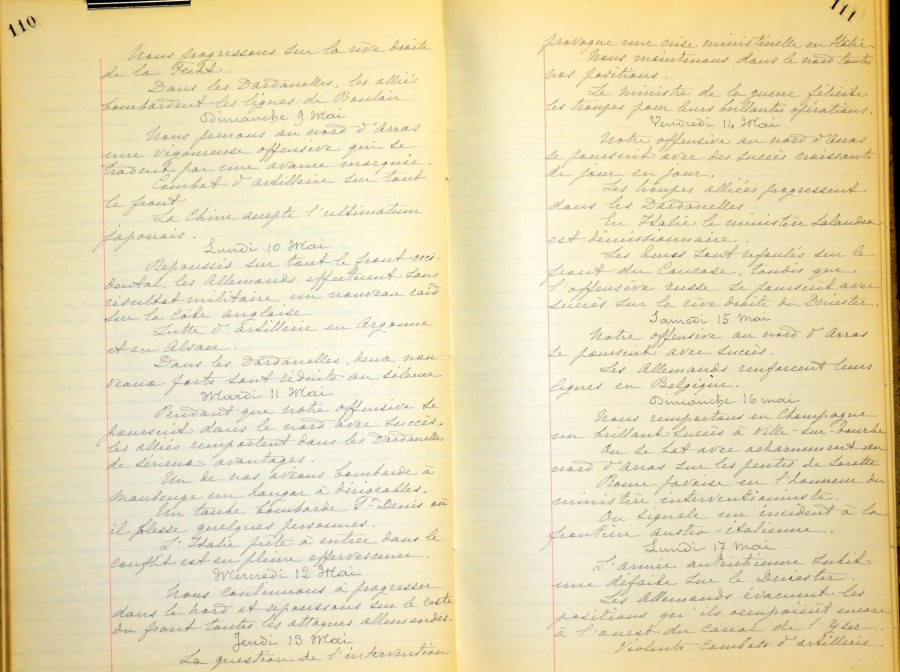 110
Nous progressons sur la rive droite
de la Fecht.
Dans les Dardanelles, les alliés
bombardent les lignes de Boulair
Dimanche 9 Mai
Nous prenons au nord d'Arras
une vigoureuse offensive qui se
traduit par une avance marquée.
Combat d'artillerie sur tout
le front
La Chine accepte l'ultimatum
japonais.
Lundi 10 Mai
Repoussés sur tout le front occi-
dental, les Allemands effectuent sans
résultat militaire un nouveau raid
sur la côte anglaise
Lutte d'artillerie en Argonne
et en Alsace.
Dans les Dardanelles, deux nou-
veaux forts sont réduits au silence
Mardi 11 Mai
Pendant que notre offensive se
poursuit dans le nord avec succès,
les alliés remportent dans les Dardanelles
de sérieux avantages.
Un de nos avions bombarde à
Maubeuge un hangar à dirigeables.
Un taube bombarde St-Denis où
il blesse quelques personnes.
L'Italie prête à entrer dans le
conflit est en pleine effervescence.
Mercredi 12 Mai
Nous continuons à progresser
dans le nord et repoussons sur le reste
du front toutes les attaques allemandes.
Jeudi 13 Mai
La question de l'intervention
111
provoque une crise ministérielle en Italie.
Nous maintenons dans le nord toutes
nos positions.
Le ministre de la guerre félicite
les troupes pour leurs brillantes opérations.
Vendredi 14 Mai
Notre offensive au nord d'Arras
se poursuit avec des succès croissants
de jour en jour.
Les troupes alliées progressent
dans les Dardanelles
En Italie le ministère Salandra
est démissionnaire.
Les Turcs sont refoulés sur le
front du Caucase, tandis que
l'offensive russe se poursuit avec
succès sur la rive droite du Dniester.
Samedi 15 Mai
Notre offensive au nord d'Arras
se poursuit avec succès.
Les Allemands renforcent leurs
lignes en Belgique.
Dimanche 16 mai
Nous remportons en Champagne
un brillant succès à Ville-sur-Tourbe
On se bat avec acharnement au
nord d'Arras sur les pentes de Lorette
Rome pavoise en l'honneur du
ministère interventionniste.
On signale un incident à la
frontière austro-italienne.
Lundi 17 Mai
L'armée autrichienne subit
une défaite sur le Dniester.
Les Allemands évacuent les
positions qu'ils occupaient encore
à l'ouest du canal de l'Yser.
Violents combats d'artillerie